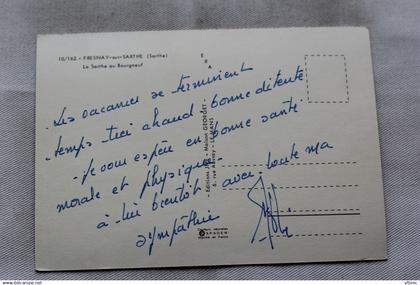 10/162 - FRESNAY-sur-SARTHE (Sarthe)
La Sarthe au Bourgneuf
Les vacances se terminent
temps très chaud, bonne détente
Je vous espère en bonne santé
morale et physique
à bientôt avec toute ma
sympathie
- Editions J - Maison GEORGET -
6, rue - LE MANS
SPADEM